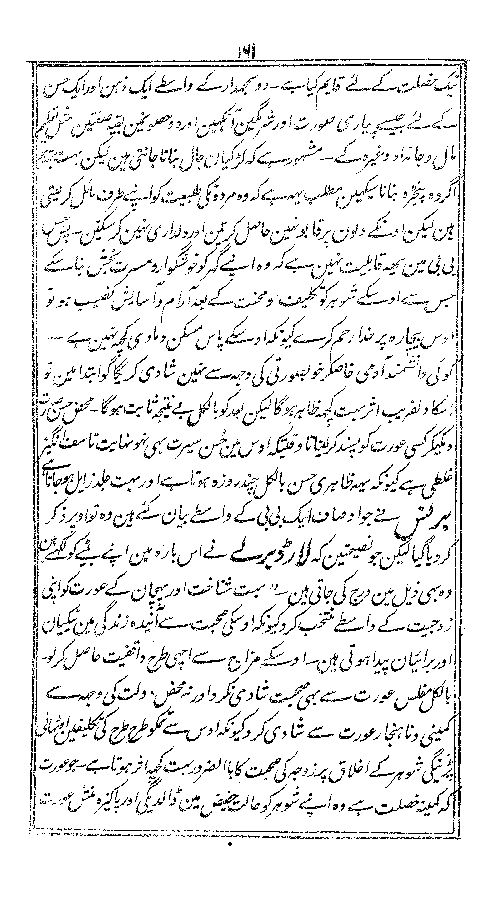 ۱۶۱
نیک خصلت کے لئے قایم کیا ہے ۔ دو سمجھدار کے واسطے ایک ذہن اور ایک حسن
کے لئے جیسے پیاری صورت اور شرمگین آنکھین اور دو حصونمین بقیہ صفتین مثل تعلیم
مال و جائداد وغیرہ کے ۔ مشہور ہے کہ لڑکیان جال بنانا جانتی ہین لیکن بہت بہتر ہو
اگر وہ پنجرہ بنانا سیکہین مطلب یہہ ہے کہ وہ مردونکی طبیعت کو اپنے طرف مائل کر لیتی
ہین لیکن اونکے دلون پر قابو نہین حاصل کرتین اور دلداری نہین کر سکتین ۔ پس جس
بی بی مین یہہ قابلیت نہین ہے کہ وہ اپنے گہر کو خوشگوار و مسرت بخش بنا سکے
جس سے اوسکے شوہر کو تکلیف و محنت کے بعد آرام و آسایش نصیب ہو تو
اوس بیچارہ پر خدا رحم کرے کیونکہ اوسکے پاس مسکن و ماوی کچہہ نہین ہے ۔
کوئی دانشمند آدمی خاصکر خوبصورتی کی وجہ سے نہین شادی کریگا گو ابتدا مین تو
اسکا دلفریب اثر بہت کچہہ ظاہر ہوگا لیکن بعد کو بالکل بے نتیجہ ثابت ہوگا ۔ محض حسن صورت
دیکہکر کسی عورت کو پسند کر لینا تا وقتیکہ اوس مین حسن سیرت بہی نہو نہایت تاسف انگیز
غلطی ہے کیونکہ یہہ ظاہری حسن بالکل چند روزہ ہوتا ہے اور بہت جلد زایل ہو جاتا ہے
برنس نے جو اوصاف ایک بی بی کے واسطے بیان کئے ہین وہ تو اوپر ذکر
کر دیا گیا لیکن جو نصیحتین کہ لارڈ برلے نے اس بارہ مین اپنے بیٹے کو لکہے ہین
وہ بہی ذیل مین درج کی جاتی ہین ۔ "بہت شناخت اور پہچان کے عورت کو اپنی
زوجیت کے واسطے منتخب کرو کیونکہ اوسکی صحبت سے آئندہ زندگی مین نیکیان
اور برائیان پیدا ہوتی ہین ۔ اوسکے مزاج سے اچہی طرح واقفیت حاصل کر لو ۔
بالکل مفلس عورت سے بہی صحبت شادی نکرو اور نہ محض دولت کی وجہ سے
کمینی و ناہنجار عورت سے شادی کرو کیونکہ اوس سے تمکو طرح طرح کی تکلیفین اوٹہانی
پڑینگی شوہر کے اخلاق پر زوجہ کی صحبت کا بالضرور بہت کچہہ اثر ہوتا ہے ۔ جو عورت
کہ کمینہ خصلت ہے وہ اپنے شوہر کو حالت حضیض مین ڈالدیگی اور پاکیزہ منش عورت